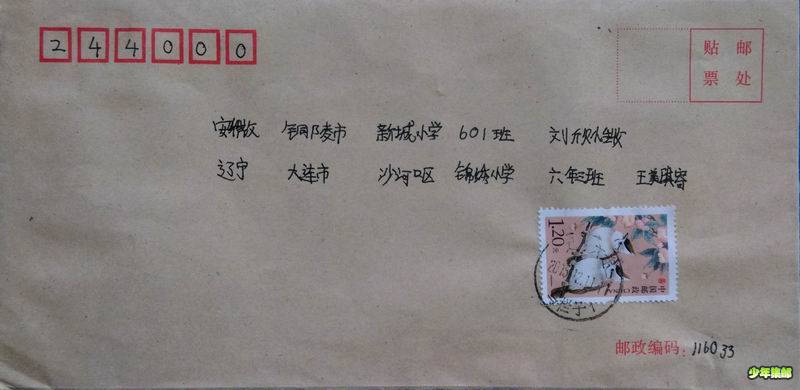 244000
贴邮
票处
安徽 铜陵市 新城小学 601班
辽宁 大连市 沙河口区 锦绣小学 六年三班 王美琪
1.20元
中国邮政 CHINA
邮政编码:116033
少年集邮